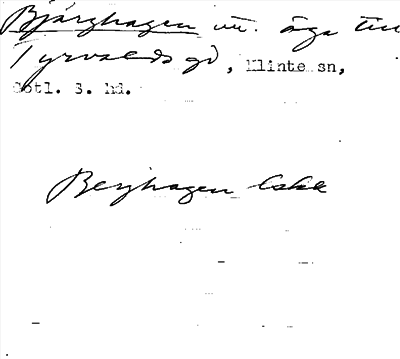 Bjärghagen m. äga till
Tyrvalds gd, Klinte sn,
Gotl. S. hd.
Berghagen Cska